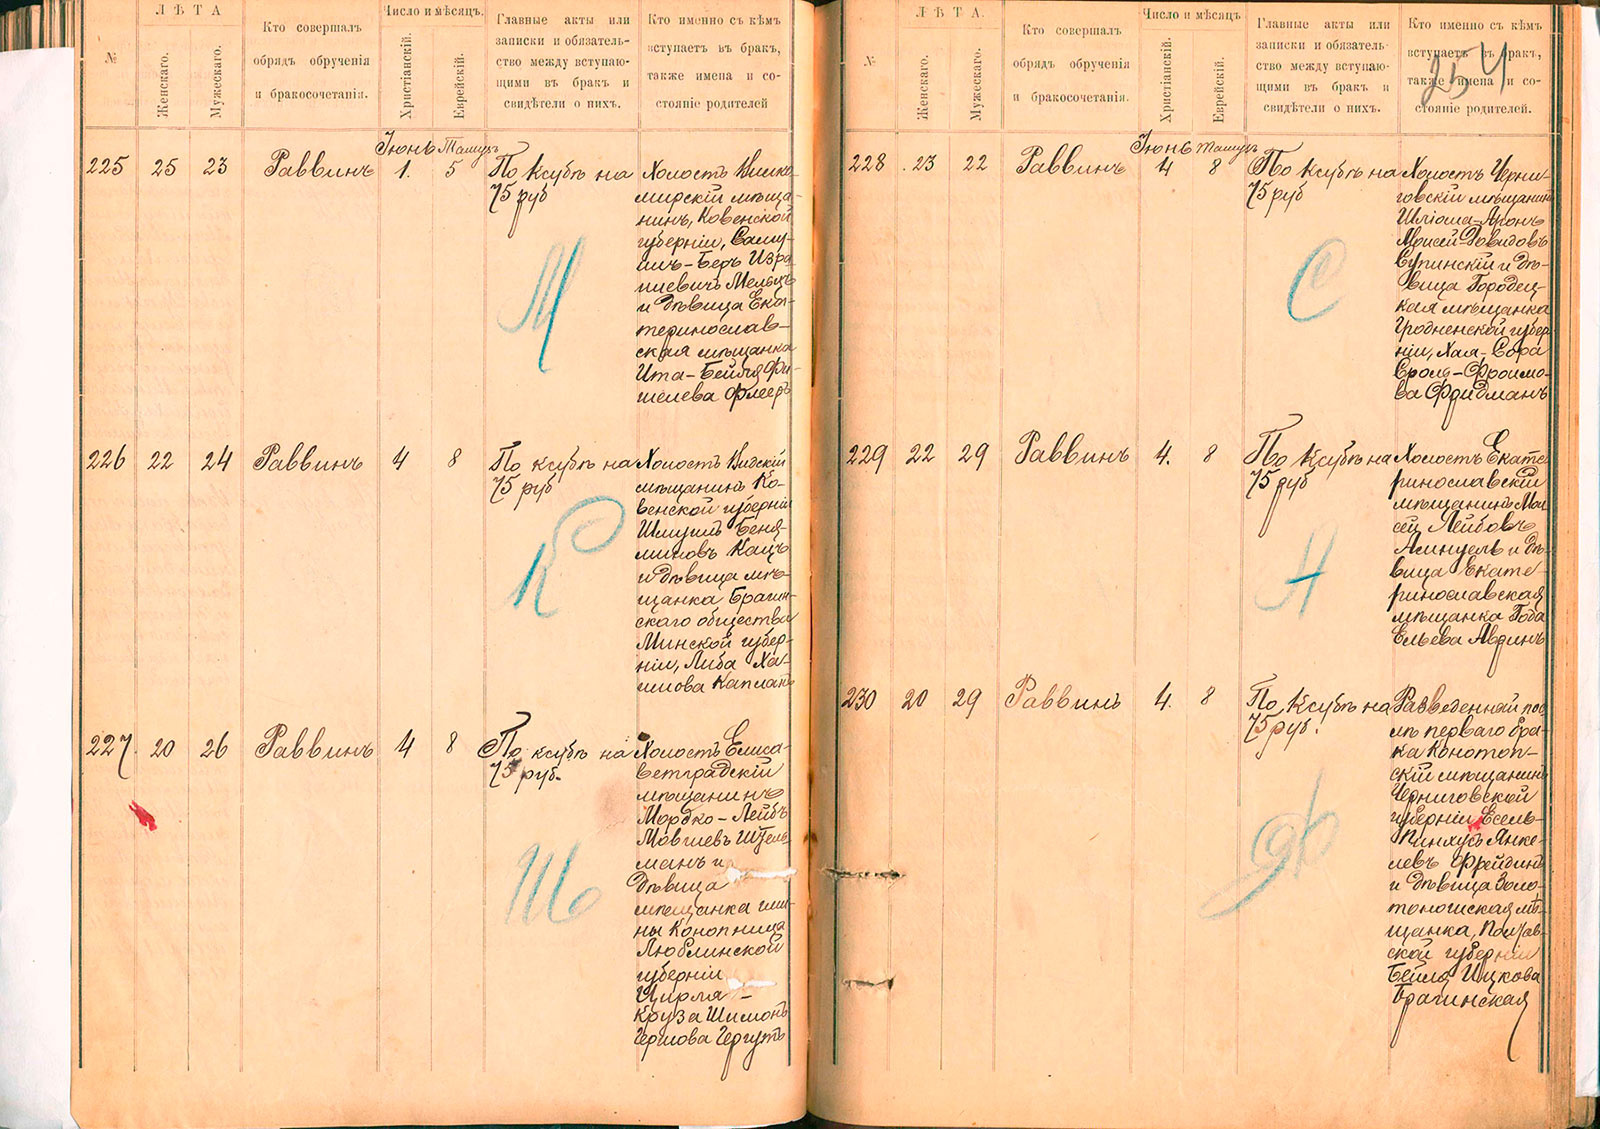 №
ЛѢТА
Женскаго.
Мужескаго.
Кто совершалъ
обрядъ обрученія
и бракосочетанія.
Число и мѣсяцъ.
Христіанскій.
Еврейскій.
Главные акты или
записки и обязатель-
ство между вступаю-
щими въ бракъ и
свидѣтели о нихъ.
Кто именно съ кѣмъ
вступаетъ въ бракъ,
также имена и со-
стояніе родителей
225
25
23
Раввинъ
Іюнь
1.
Тамузъ
5
По ксубѣ на
75 руб
М
Холостъ Вилко-
мирскій мѣща-
нинъ, Ковенской
губерніи, Саму-
илъ-Беръ Изра-
илевичъ Мельцъ
и дѣвица Ека-
теринослав-
ская мѣщанка
Ита-Бейля Фи-
шелева Флееръ
226
22
24
Раввинъ
4
8
По ксубѣ на
75 руб
К
Холостъ Видскій
мѣщанинъ Ко-
венской губерніи
Шмуилъ Беня-
миновъ Кацъ
и дѣвица мѣ-
щанка Брагин-
скаго общества
Минской губер-
ніи, Либа Ха-
имова Капланъ
227.
20
26
Раввинъ
4
8
По ксубѣ на
75 руб.
Ш
Холостъ Елиса-
ветградскій
мѣщанинъ
Мордко-Лейбъ
Мовшевъ Штель-
манъ и
дѣвица
мѣщанка гми-
ны Конопница
Люблинской
губерніи
Цирля-
Круза Шимонъ
Гершова Гергутъ
254
№
ЛѢТА.
Женскаго.
Мужескаго.
Кто совершалъ
обрядъ обрученія
и бракосочетанія.
Число и мѣсяцъ
Христіанскій.
Еврейскій.
Главные акты или
записки и обязатель-
ство между вступаю-
щими въ бракъ и
свидѣтели о нихъ.
Кто именно съ кѣмъ
вступаетъ въ бракъ,
также имена и со-
стояніе родителей.
228
23
22
Раввинъ
Іюнь
4
Тамузъ
8
По ксубѣ на
75 руб
С
Холостъ Черни-
говскій мѣщанинъ
Шліома-Аронъ
Моисей-Довидовъ
Супинскій и дѣ-
вица Городец-
кая мѣщанка
Гродненской губер-
ніи, Хая-Сора
Сроль-Фроимо-
ва Фридманъ
229
22
29
Раввинъ
4.
8
По ксубѣ на
75 руб
Н
Холостъ Екате-
ринославскій
мѣщанинъ Мои-
сей Лейбовъ
и дѣ-
вица Екате-
ринославская
мѣщанка Года
Ельева Авринъ
230
20
29
Раввинъ
4.
8
По ксубѣ на
75 руб.
Ф
Разведенный пос-
лѣ перваго бра-
ка Конотоп-
скій мѣщанинъ
Черниговской
губерніи Есель-
Пинхусъ Янке-
левъ Фрейдинъ
и дѣвица Золо-
тоношская мѣ-
щанка, Полтав-
ской губерніи
Бейля Ицкова
Брагинская